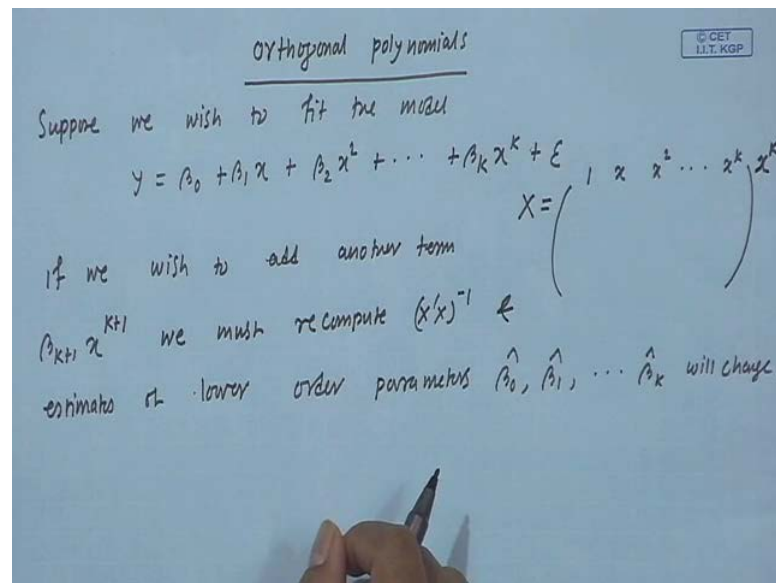 orthogonal polynomials
© CET
I.I.T. KGP
Suppose we wish to fit the model
y = β₀ + β₁x + β₂x² + ··· + β_K x^K + ε
X = ( 1 x x² ··· x^K ) x^K
If we wish to add another term
β_{K+1} x^{K+1} we must recompute (X'X)⁻¹ &
estimates of lower order parameters β̂₀, β̂₁, ··· β̂_K will change